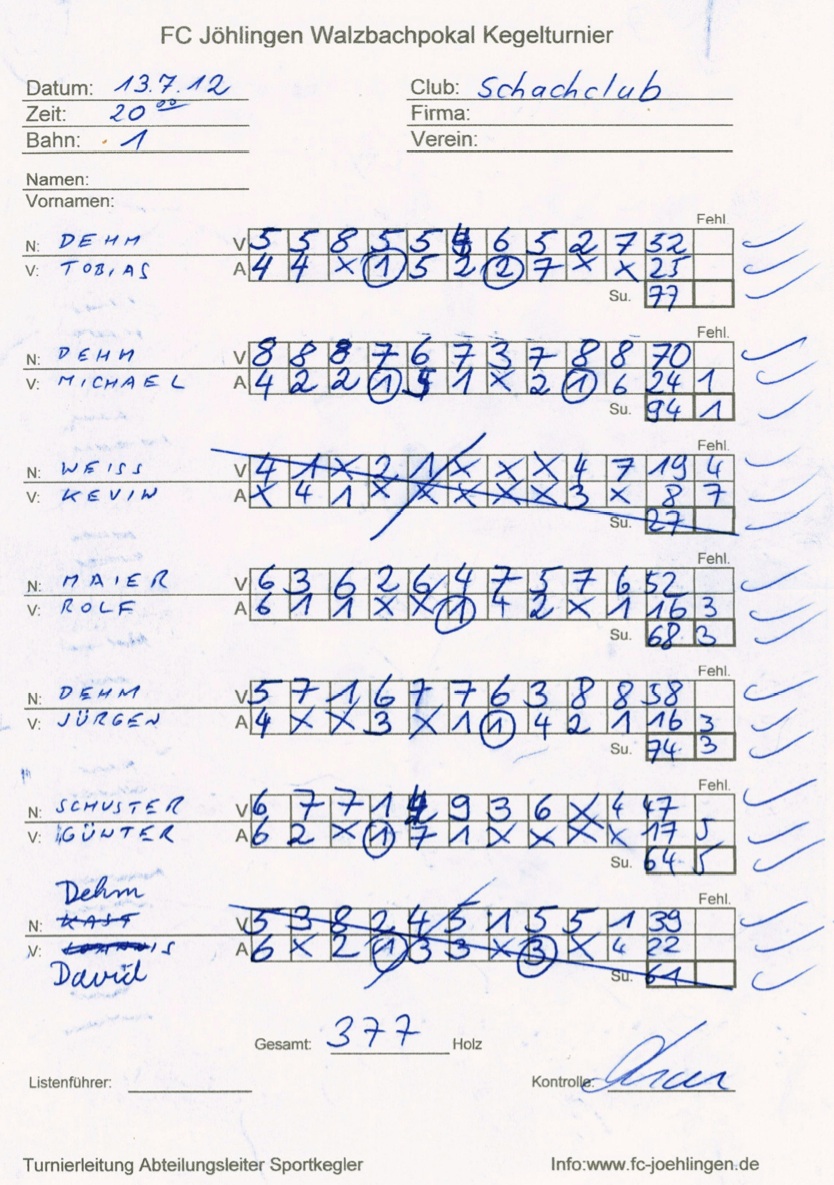 FC Jöhlingen Walzbachpokal Kegelturnier
Datum: 13.7.12 Club: Schachclub
Zeit: 20 00 Firma:
Bahn: 1 Verein:
Namen:
Vornamen:
Fehl.
N: DEHM V 5 5 8 5 5 4 6 5 2 7 52
V: TOBIAS A 4 4 X 1 5 2 2 7 X X 25
Su. 77
Fehl.
N: DEHM V 8 8 8 7 6 7 3 7 8 8 70
V: MICHAEL A 4 2 2 1 5 1 X 2 1 6 24 1
Su. 94 1
Fehl.
N: WEISS V 4 1 X 2 1 X X X 4 7 19 4
V: KEVIN A X 4 1 X X X X X 3 X 8 7
Su. 27
Fehl.
N: MAIER V 6 3 6 2 6 4 7 5 7 6 52
V: ROLF A 6 1 1 X X 1 4 2 X 1 16 3
Su. 68 3
Fehl.
N: DEHM V 5 7 1 6 7 7 6 3 8 8 58
V: JÜRGEN A 4 X X 3 X 1 1 4 2 1 16 3
Su. 74 3
Fehl.
N: SCHUSTER V 6 7 7 1 4 9 3 6 X 4 47
V: GÜNTER A 6 2 X 1 7 1 X X X X 17 5
Su. 64 5
Dehm
Fehl.
N: KAST V 5 3 8 2 4 5 1 5 5 1 39
V: A 6 X 2 1 3 3 X 3 X 4 22
David Su. 61
Gesamt: 377 Holz
Listenführer: Kontrolle:
Turnierleitung Abteilungsleiter Sportkegler Info:www.fc-joehlingen.de